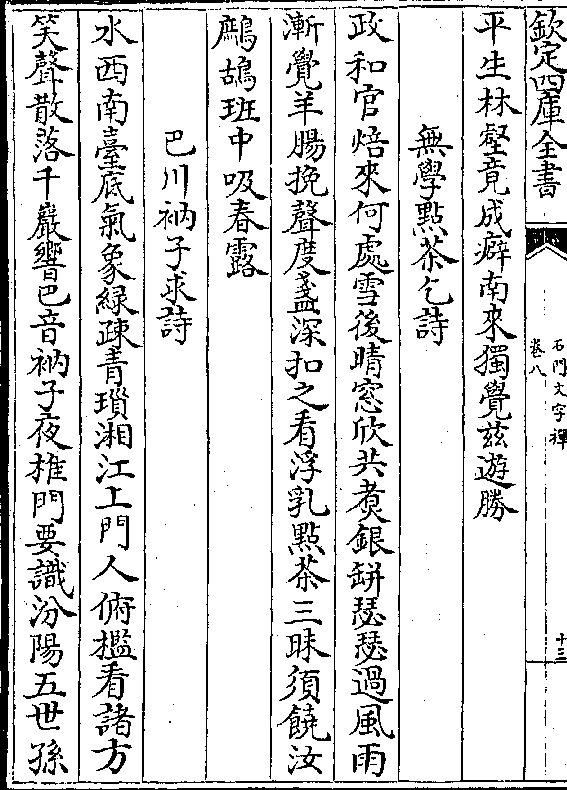 欽定四庫全書
石門文字禪
卷八
十三
平生林壑竟成癖南來獨覺兹遊勝
無學點茶乞詩
政和官焙來何處雪後晴窓欣共煮銀缾瑟瑟過風雨
漸覺羊腸挽聲度盞深扣之看浮乳點茶三昧須饒汝
鷓鴣班中吸春露
巴川衲子求詩
水西南臺底氣象緑疎青瑣湘江上門人俯檻看諸方
笑聲散落千巖響巴音衲子夜推門要識汾陽五世孫